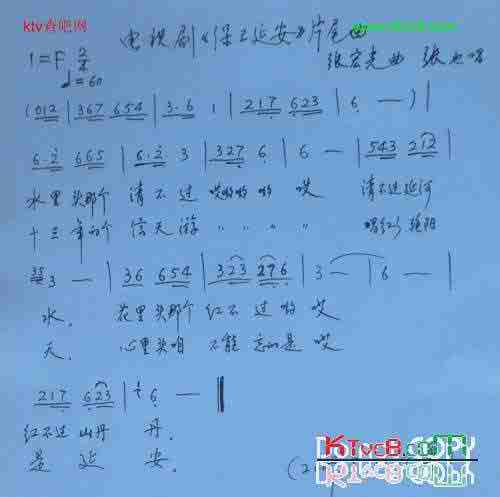 ktv看吧网
电视剧《保卫延安》片尾曲
1=F 2/4
♩=60
张宏光曲 张也唱
(012 | 367 654 | 3·6 1 | 217 623 | 6 — ) |
6·2 665 | 6·2 3 | 327 6 | 6 — | 543 212 |
水里头那个 清不过 哎哟哟哟 哎 清不过延河
十三年的个 信天游 〃 〃 〃 〃 唱红 艳阳
3 — | 36 654 | 323 276 | 3 — | 6 — |
水. 花里头那个 红不过哟 哎
天. 心里头咱 不能忘的是 哎
217 623 | 6 — ‖
红不过 山丹 丹.
是 延 安.
DO NOT COPY
KTvc8.COM